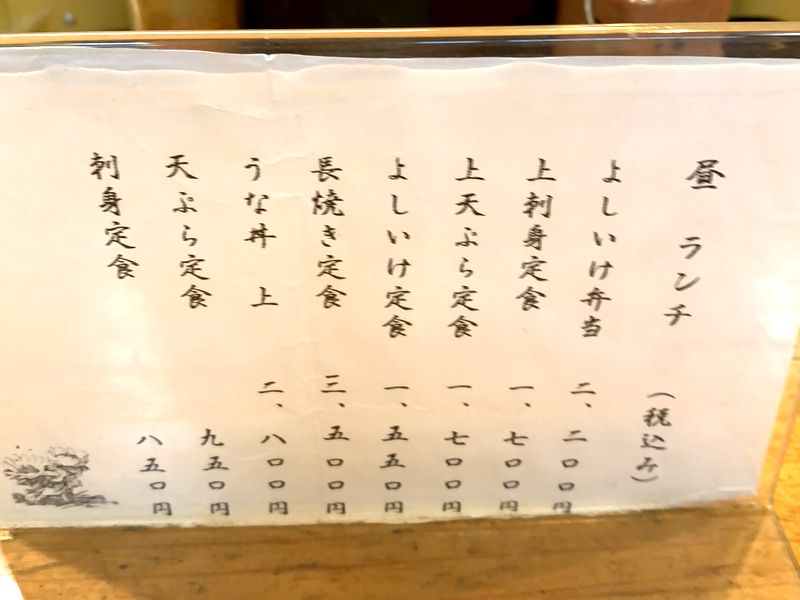 昼 ランチ (税込み)
よしいけ弁当 二、二〇〇円
上刺身定食 一、七〇〇円
上天ぷら定食 一、七〇〇円
よしいけ定食 一、五五〇円
長焼き定食 三、五〇〇円
うな丼 上 二、八〇〇円
天ぷら定食 九五〇円
刺身定食 八五〇円